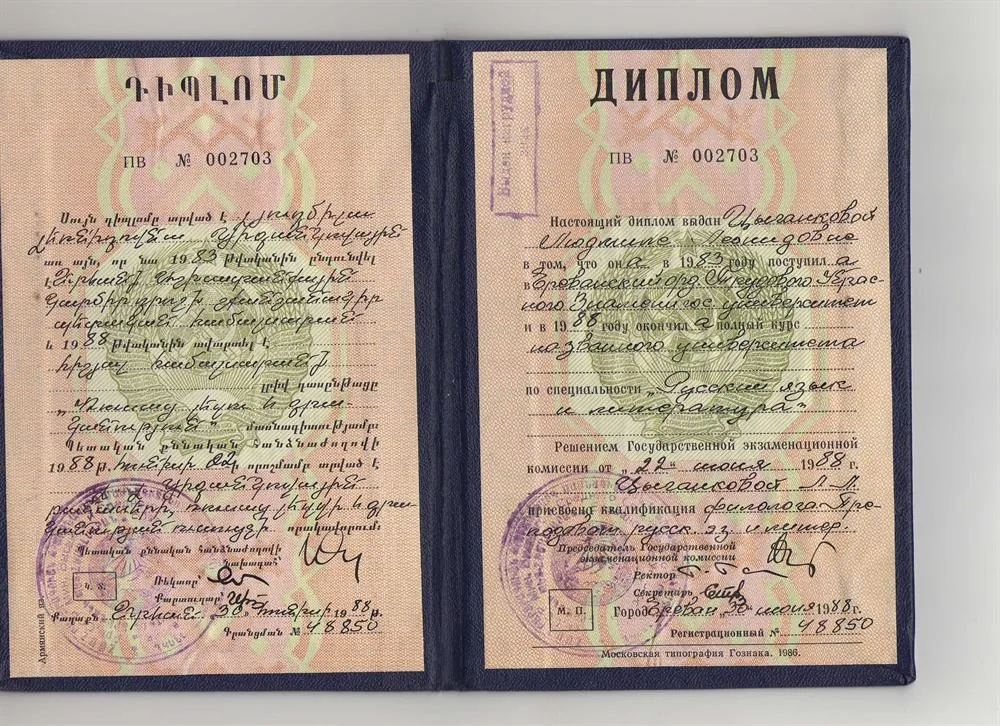 ԴԻՊԼՈՄ
ՊՎ № 002703
Սույն դիպլոմը տրված է Լյուդմիլա
Լեոնիդովնա Ցիգանկովային
առ այն, որ նա 1983 թվականին ընդունվել
է Երևանի Աշխատանքային
Կարմիր դրոշի շքանշանակիր
պետական համալսարան
և 1988 թվականին ավարտել է
նշված համալսարանի
լրիվ դասընթացը
„Ռուսաց լեզու և գրա-
կանություն“ մասնագիտությամբ
Պետական քննական հանձնաժողովի
1988 թ. հունիսի 22ի որոշմամբ տրված է
Լ. Լ. Ցիգանկովային
բանասերի, ռուսաց լեզվի և գրա-
կանության որակավորում
Պետական քննական հանձնաժողովի
նախագահ
Կ. Տ.
Ռեկտոր
Քարտուղար
Քաղաքն Երևան „30“ հունիսի 1988 թ.
Գրանցման № 48850
Армянский яз.
Выдан нагрудный
знак
ДИПЛОМ
ПВ № 002703
Настоящий диплом выдан Цыганковой
Людмиле Леонидовне
в том, что она в 1983 году поступила
в Ереванский орд. Трудового Крас-
ного Знамени гос. университет
и в 1988 году окончила полный курс
названного университета
по специальности „Русский язык
и литература“
Решением Государственной экзаменационной
комиссии от „22“ июня 1988 г.
Цыганковой Л. Л.
присвоена квалификация филолога. Пре-
подават. русск. яз. и литер.
Председатель Государственной
экзаменационной комиссии
Ректор
Секретарь
М. П.
Город Ереван „30“ июня 1988 г.
Регистрационный № 48850
Московская типография Гознака. 1986.